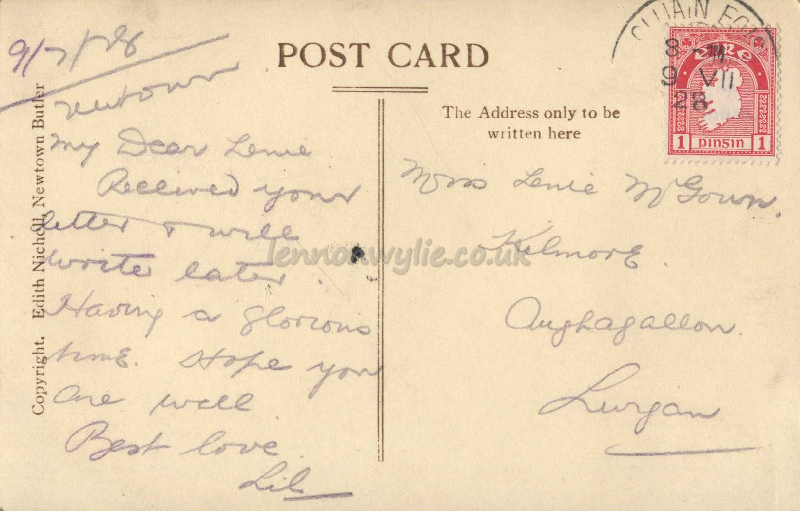 9/7/28
POST CARD
Newtown
My Dear Lenie
Received your
letter & will
write later
Having a glorious
time. Hope you
are well
Best love
Lil
Copyright. Edith Nicholl, Newtown Butler
The Address only to be
written here
Miss Lenie McGown.
Kilmore.
Aughagallon.
Lurgan
CLUAIN EOIS
8 - M
9 VII
28
éire
1 pinsin 1
lennonwylie.co.uk